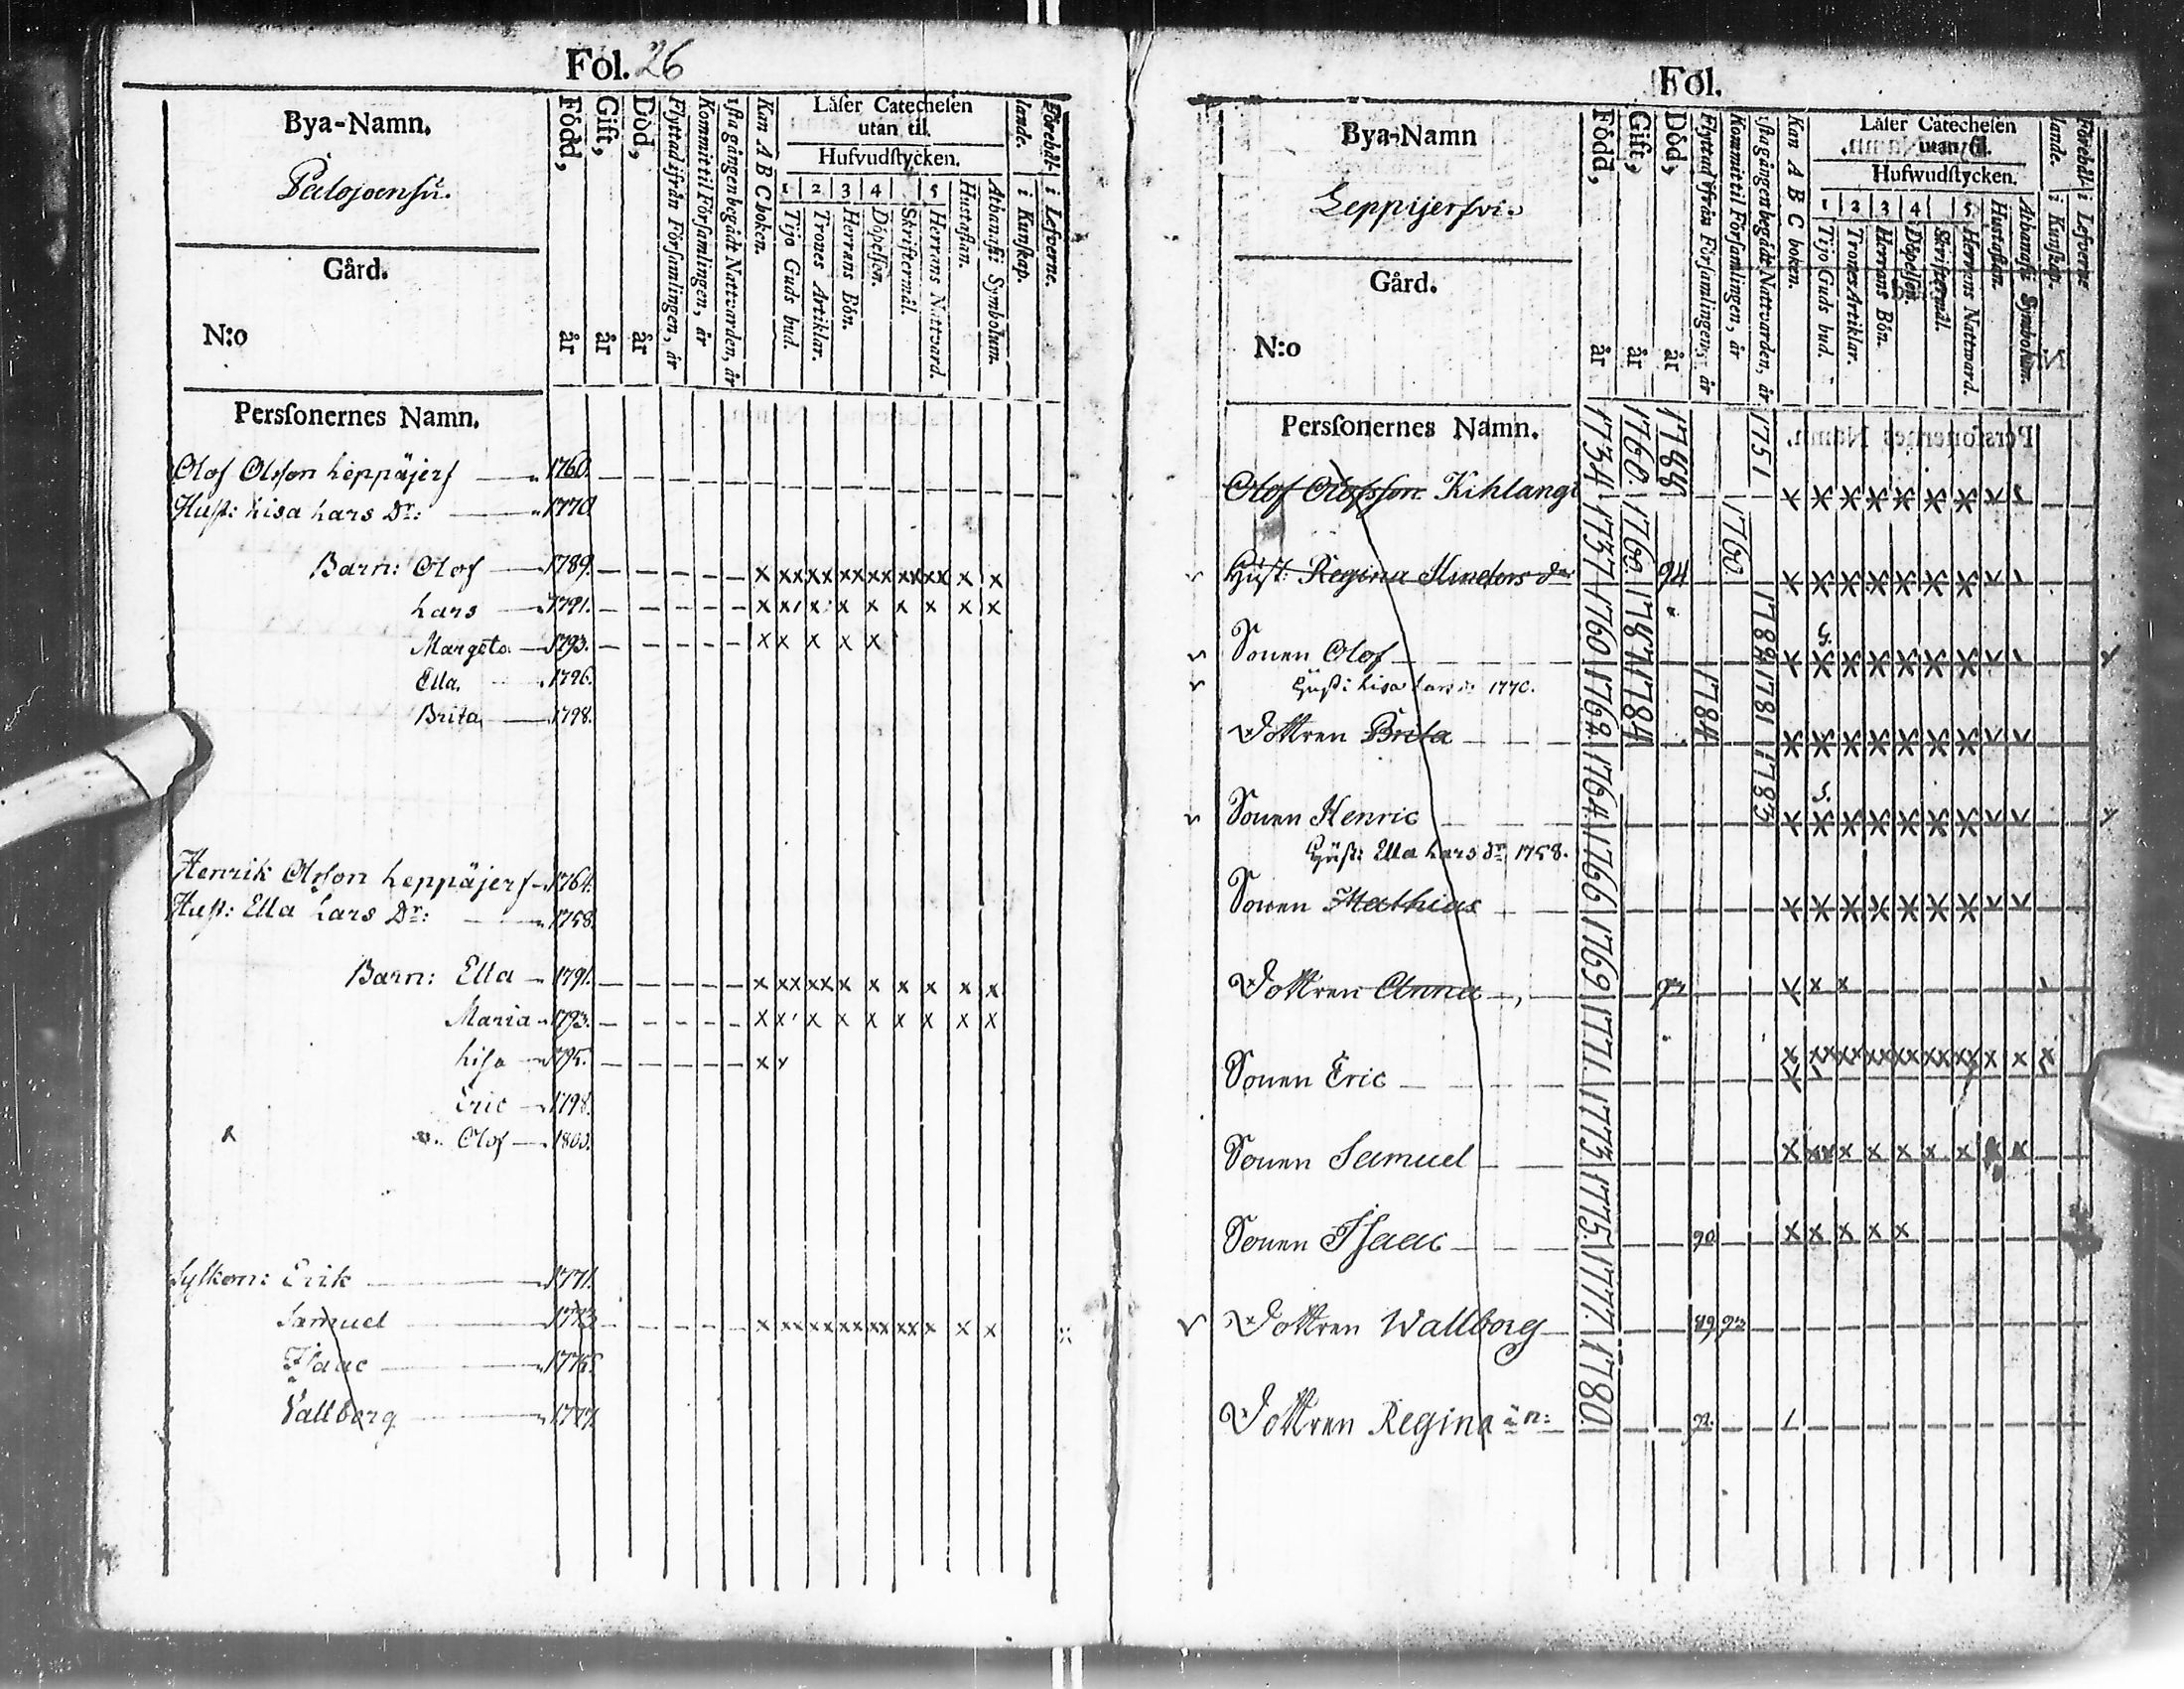 Fol. 26
Bya-Namn.
Palojoensu.
Gård.
N:o
Född, år
Gift, år
Död, år
Flyttad ifrån Församlingen, år
Kommit til Församlingen, år
1sta gången begådt Nattvarden, år
Kan A B C boken.
Läser Catechesen
utan til.
Hufvudstycken.
1 2 3 4 5
Tijo Guds bud.
Trones Artiklar.
Herrans Bön.
Döpelsen.
Skriftermål.
Herrans Nattvard.
Hustaflan.
Athanasii Symbolum.
i Kunskap.
i Lefverne.
Förehål-
lande.
Personernes Namn.
Olof Olsson Leppäjerf 1760.
Hust: Lisa Lars Dr: 1770
Barn: Olof 1789. x xx xx xx xx xx xx x x
Lars 1791. x x x x x x x x
Margeta 1793. x x x x x
Ella 1796.
Brita 1798.
Henrik Olsson Leppäjerf 1764.
Hust: Ella Lars Dr: 1758.
Barn: Ella 1791. x xx xx x x x x x x
Maria 1793. x x x x x x x x x
Lisa 1795. x x
Eric 1798.
Olof 1800.
Syskon: Erik 1771.
Samuel 1773 x xx xx xx xx xx x x x
Isaac 1775.
Vallborg 1777.
Fol.
Bya-Namn
Leppijerfvi.
Gård.
N:o
Född, år
Gift, år
Död, år
Flyttad ifrån Församlingen, år
Kommit til Församlingen, år
1sta gången begådt Nattvarden, år
Kan A B C boken.
Läser Catechesen
utan til.
Hufwudstycken.
1 2 3 4 5
Tijo Guds bud.
Trones Artiklar.
Herrans Bön.
Döpelsen.
Skriftermål.
Herrans Nattward.
Hustaflan.
Athanasii Symbolum.
i Kunskap.
i Lefverne
Förehål-
lande.
Personernes Namn.
Olof Olofsson Kihlangi 1734 1760. 1788 1751
Hust: Regina Hindersdr 1737 1760. 94 1760.
Sonen Olof 1760 1787 1782
Hust: Lisa Lars dr 1770.
Dottren Brita 1762 1784 1784 1781
Sonen Henric 1764 1783
Hust: Ella Lars dr 1758.
Sonen Mathias 1766
Dottren Anna 1769
Sonen Eric 1771.
Sonen Samuel 1773
Sonen Isaac 1775. 90
Dottren Wallborg 1777. 89
Dottren Regina 1780.